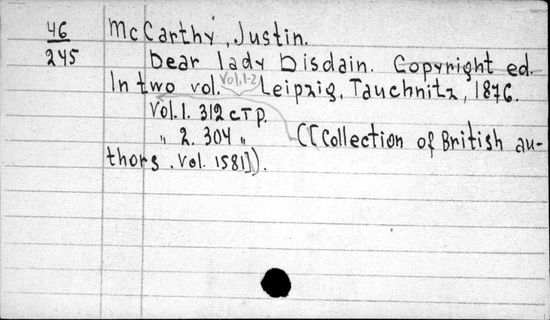 46 McCarthy, Justin.
245 Dear lady Disdain. Copyright ed.
In two vol. Vol. 1-2 Leipzig, Tauchnitz, 1876.
Vol. 1. 312 стр.
„ 2. 304 „ ([Collection of British au-
thors. Vol. 1581]).